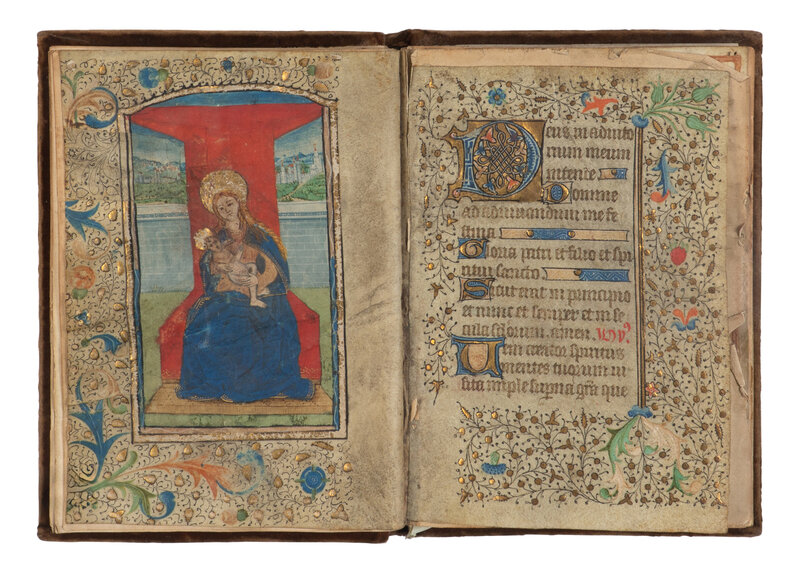 Deus in adiuto
rium meum
intende
Domine
ad adiuuandum me fe
stina
Gloria patri et filio et spi
ritui sancto
Sicut erat in principio
et nunc et semper et in se
cula sclorum amen. ymp̅ꝰ
Ueni creator spiritus
mentes tuorum ui
sita imple superna gr̅a que